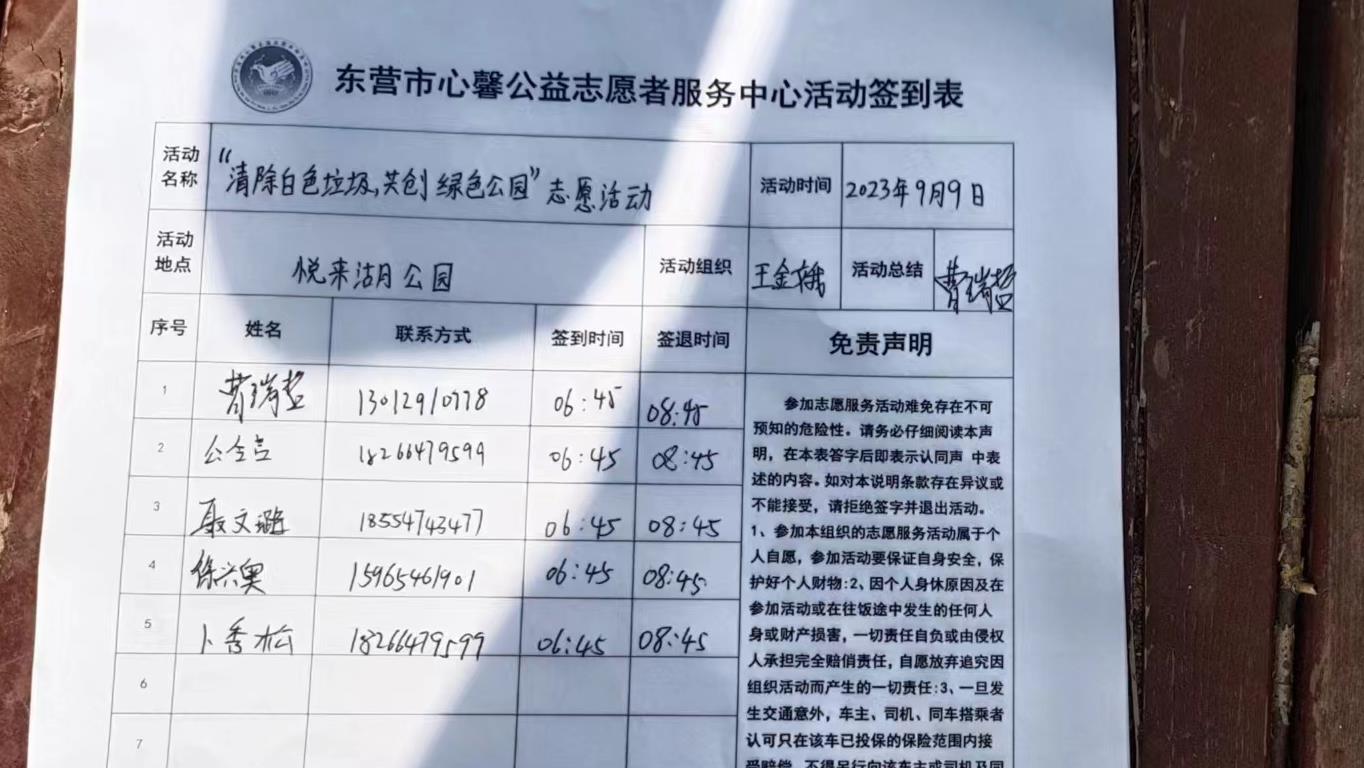 东营市心馨公益志愿者服务中心活动签到表
活动名称 “清除白色垃圾,共创绿色公园”志愿活动 活动时间 2023年9月9日
活动地点 悦来湖公园 活动组织 王金娥 活动总结 曹瑞哲
序号 姓名 联系方式 签到时间 签退时间 免责声明
1 曹瑞哲 13012910778 06:45 08:45
2 18266479599 06:45 08:45
3 聂文璐 18554743477 06:45 08:45
4 徐兴奥 15965461901 06:45 08:45
5 卜秀松 18266479599 06:45 08:45
6
7
参加志愿服务活动难免存在不可
预知的危险性。请务必仔细阅读本声
明，在本表答字后即表示认同声 中表
述的内容。如对本说明条款存在异议或
不能接受，请拒绝签字并退出活动。
1、参加本组织的志愿服务活动属于个
人自愿，参加活动要保证自身安全，保
护好个人财物:2、因个人身休原因及在
参加活动或在往饭途中发生的任何人
身或财产损害，一切责任自负或由侵权
人承担完全赔偿责任，自愿放弃追究因
组织活动而产生的一切责任:3、一旦发
生交通意外，车主、司机、同车搭乘者
认可只在该车已投保的保险范围内接
受赔偿，不得另行向该车主或司机及同